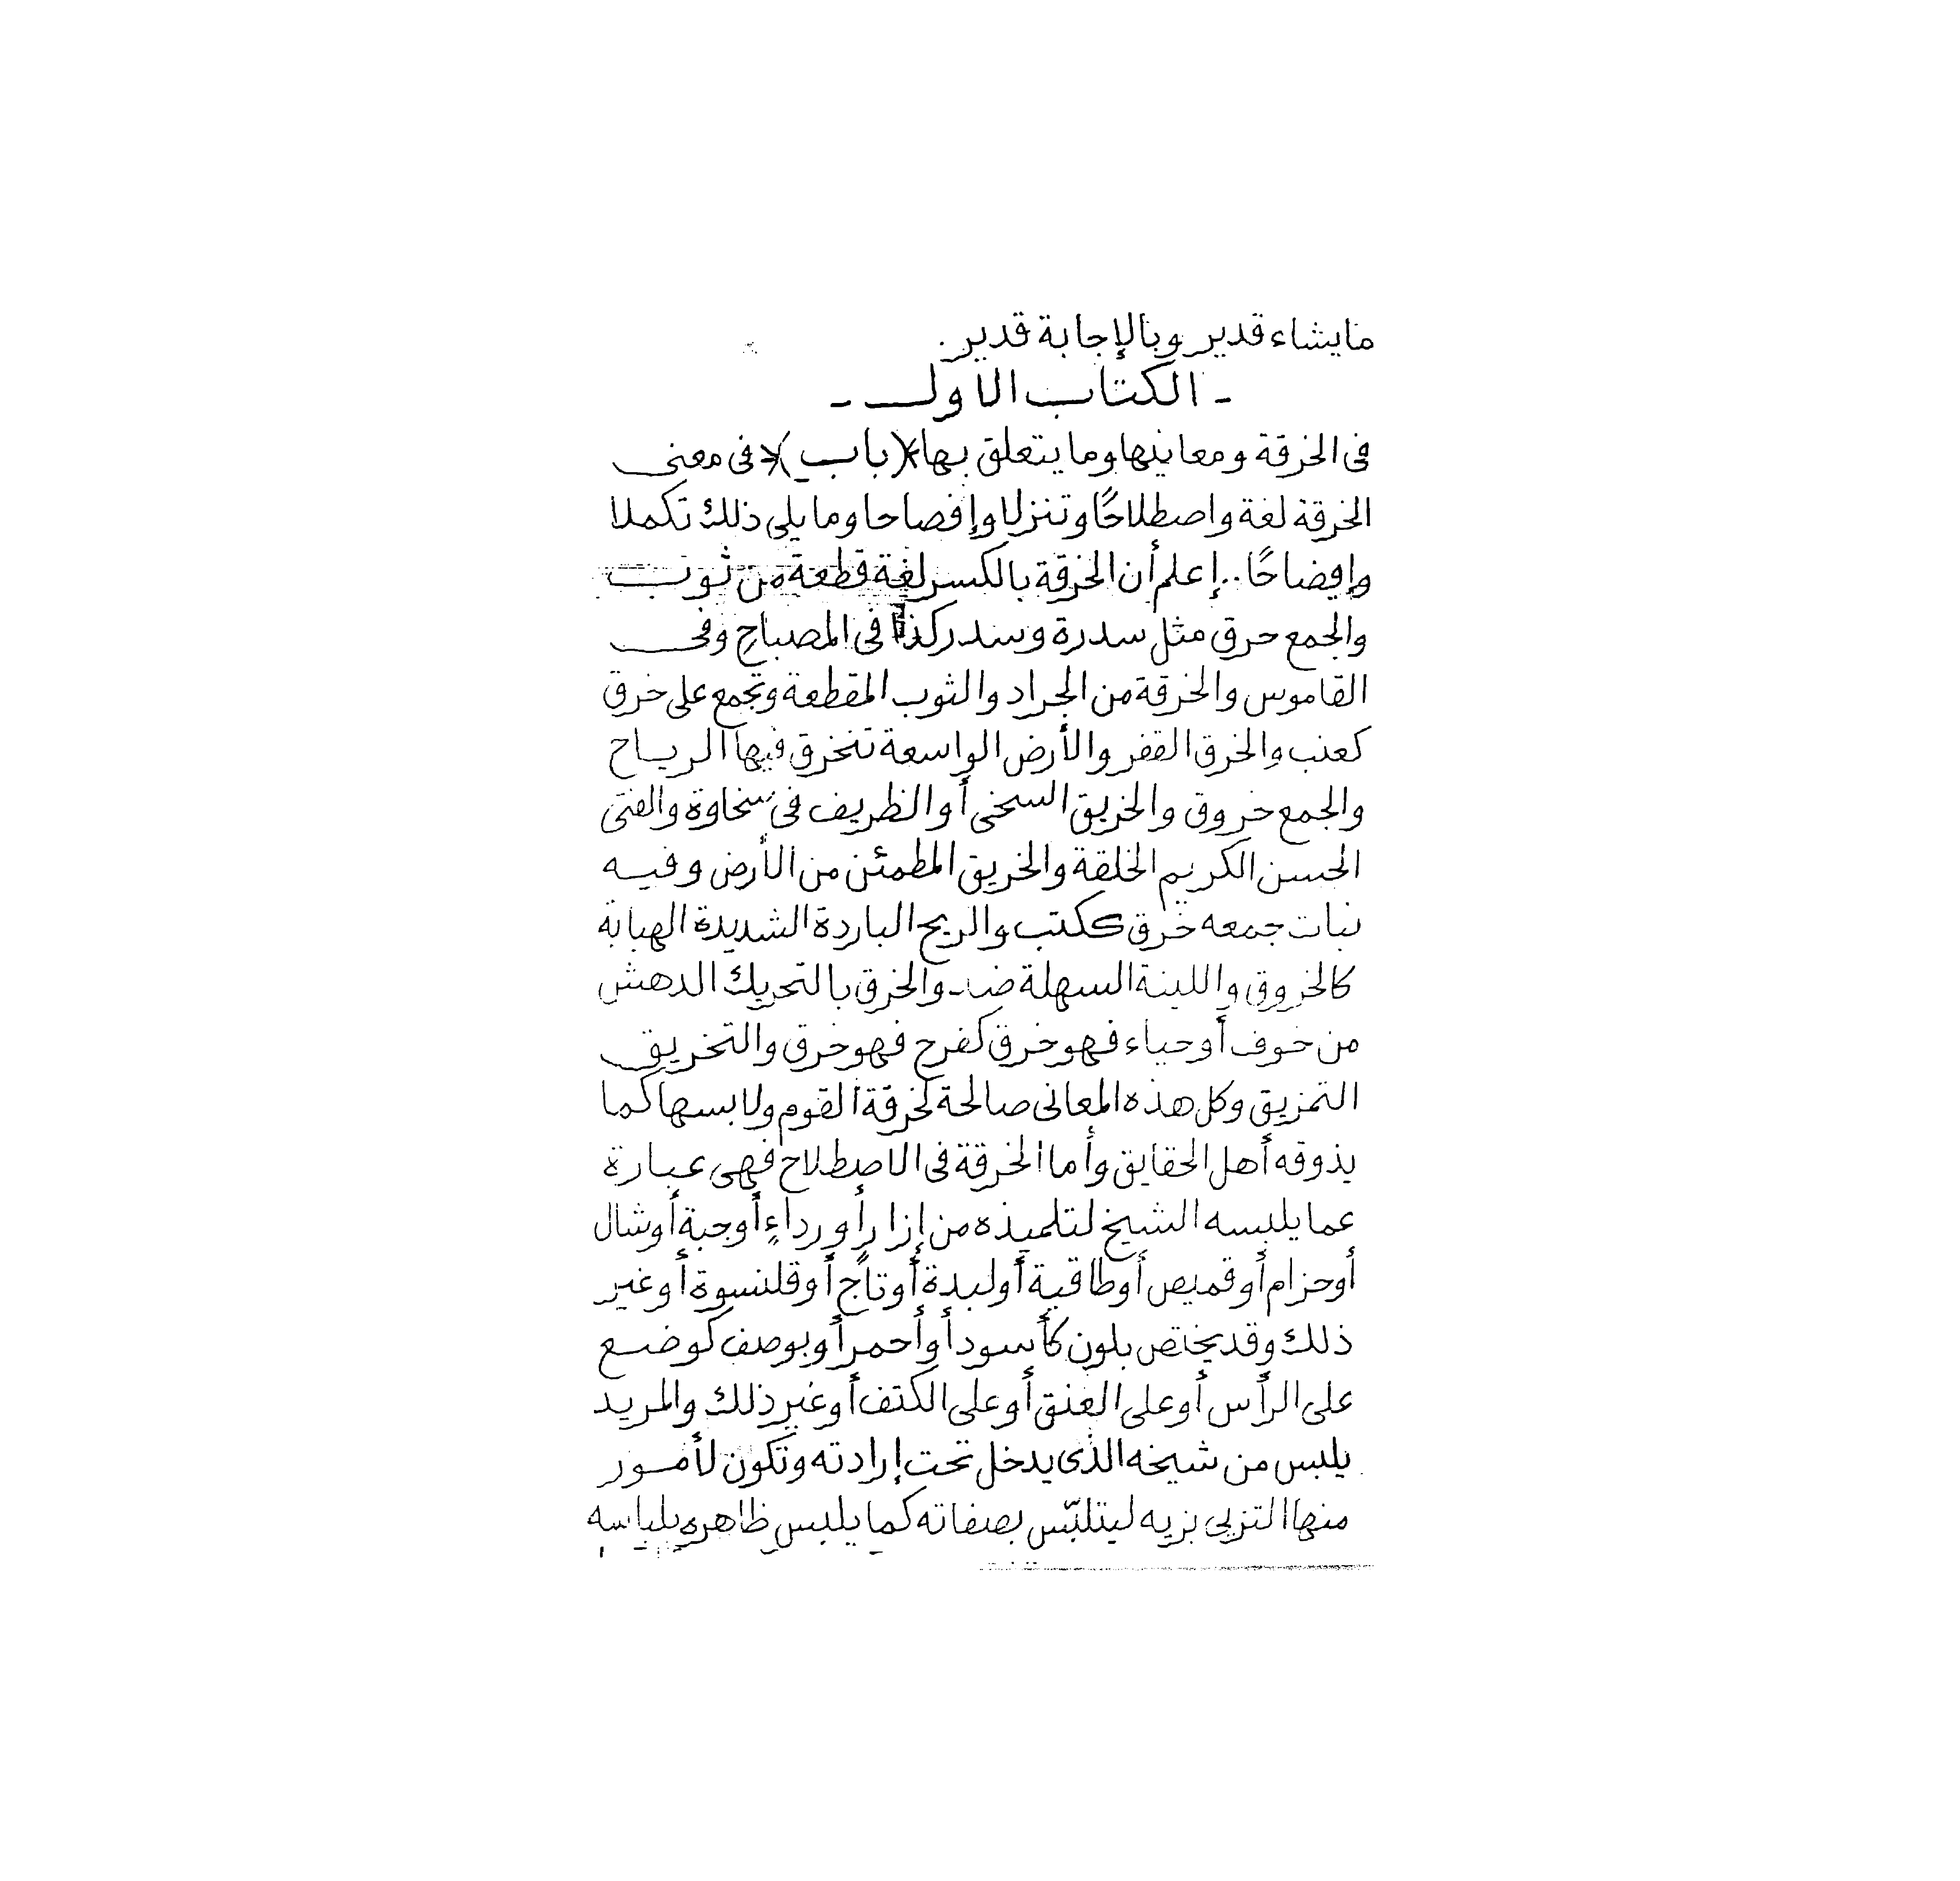 مايشاء قدير وبالإجابة قدير.
- الكتاب الاول -
فى الخرقة ومعاينها وما يتعلق بها *(باب)* فى معنى
الخرقة لغة واصطلاحًا وتنزلا وإفصاحا وما يلى ذلك تكملا
وإيضاحًا .. إعلم أن الخرقة بالكسر لغة قطعة من ثوب
والجمع خرق مثل سدرة وسدر كذا فى المصباح وفى
القاموس والخرقة من الجراد والثوب المقطعة وتجمع على خرق
كعنب والخرق القفر والأرض الواسعة تنخرق فيها الرياح
والجمع خروق والخريق السخى أو الظريف فى سخاوة والفتى
الحسن الكريم الخلقة والخريق المطمئن من الأرض وفيه
نبات جمعه خرق ككتب والريح الباردة الشديدة الهبابة
كالخروق واللينة السهلة ضد - والخرق بالتحريك الدهش
من خوف أو حياء فهو خرق كفرح فهو خرق والتخريق
التمزيق وكل هذه المعانى صالحة لخرقة القوم ولابسها كما
يذوقه أهل الحقايق وأما الخرقة فى الاصطلاح فهى عبارة
عما يلبسه الشيخ لتلميذه من إزار أو رداءٍ أو جبة أو شال
أو حزام أو قميص أو طاقية أو لبدة أو تاج أو قلنسوة أو غير
ذلك وقد يختص بلون كأسود أو أحمر أو بوصف كوضع
على الرأس أو على العنق أو على الكتف أو غير ذلك والمريد
يلبس من شيخه الذى يدخل تحت إرادته وتكون لأمور
منها التزيى بزيه ليتلبّس بصفاته كما يلبس ظاهره بلباسه